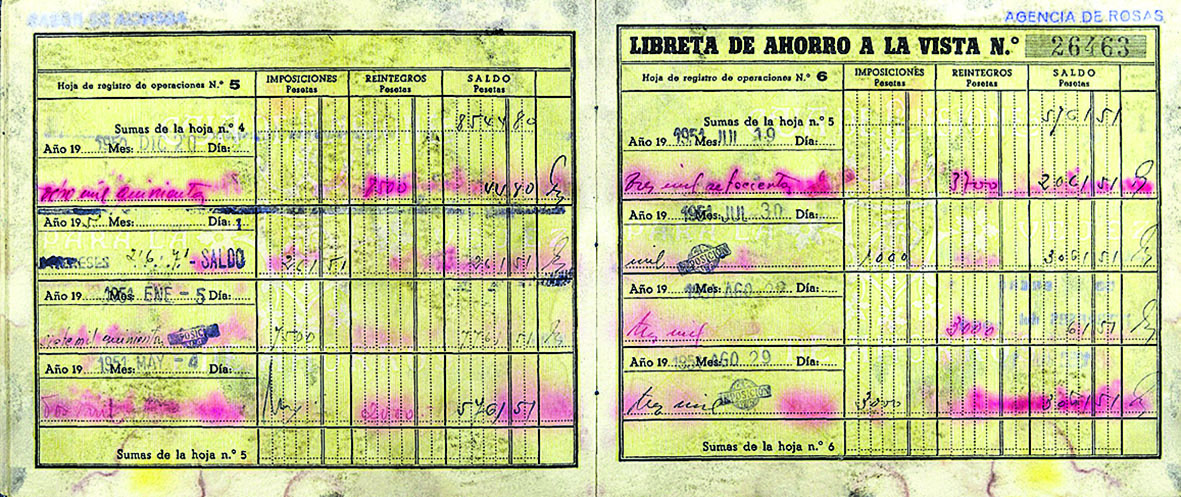 AGENCIA DE ROSAS
Hoja de registro de operaciones N.º 5
IMPOSICIONES Pesetas
REINTEGROS Pesetas
SALDO Pesetas
Sumas de la hoja n.º 4
8544 80
Año 19 Mes: DIC 20 Día:
ocho mil quinientas 8500 44 80
Año 19 Mes: Día:
INTERESES SALDO 261 51
Año 19 Mes: Día:
1951 ENE - 5
siete mil quinientas IMPOSICION 7500 7761 51
Año 19 Mes: Día:
1951 MAY - 4
dos mil 2000 5761 51
Sumas de la hoja n.º 5
LIBRETA DE AHORRO A LA VISTA N.º 26463
Hoja de registro de operaciones N.º 6
IMPOSICIONES Pesetas
REINTEGROS Pesetas
SALDO Pesetas
Sumas de la hoja n.º 5
5761 51
Año 19 Mes: Día:
1951 JUL 19
tres mil setecientas 3700 2061 51
Año 19 Mes: Día:
1951 JUL 30
mil IMPOSICION 1000 3061 51
Año 19 Mes: Día:
1951 AGO
tres mil 3000 61 51
Año 19 Mes: Día:
1951 AGO 29
tres mil IMPOSICION 3000 3061 51
Sumas de la hoja n.º 6